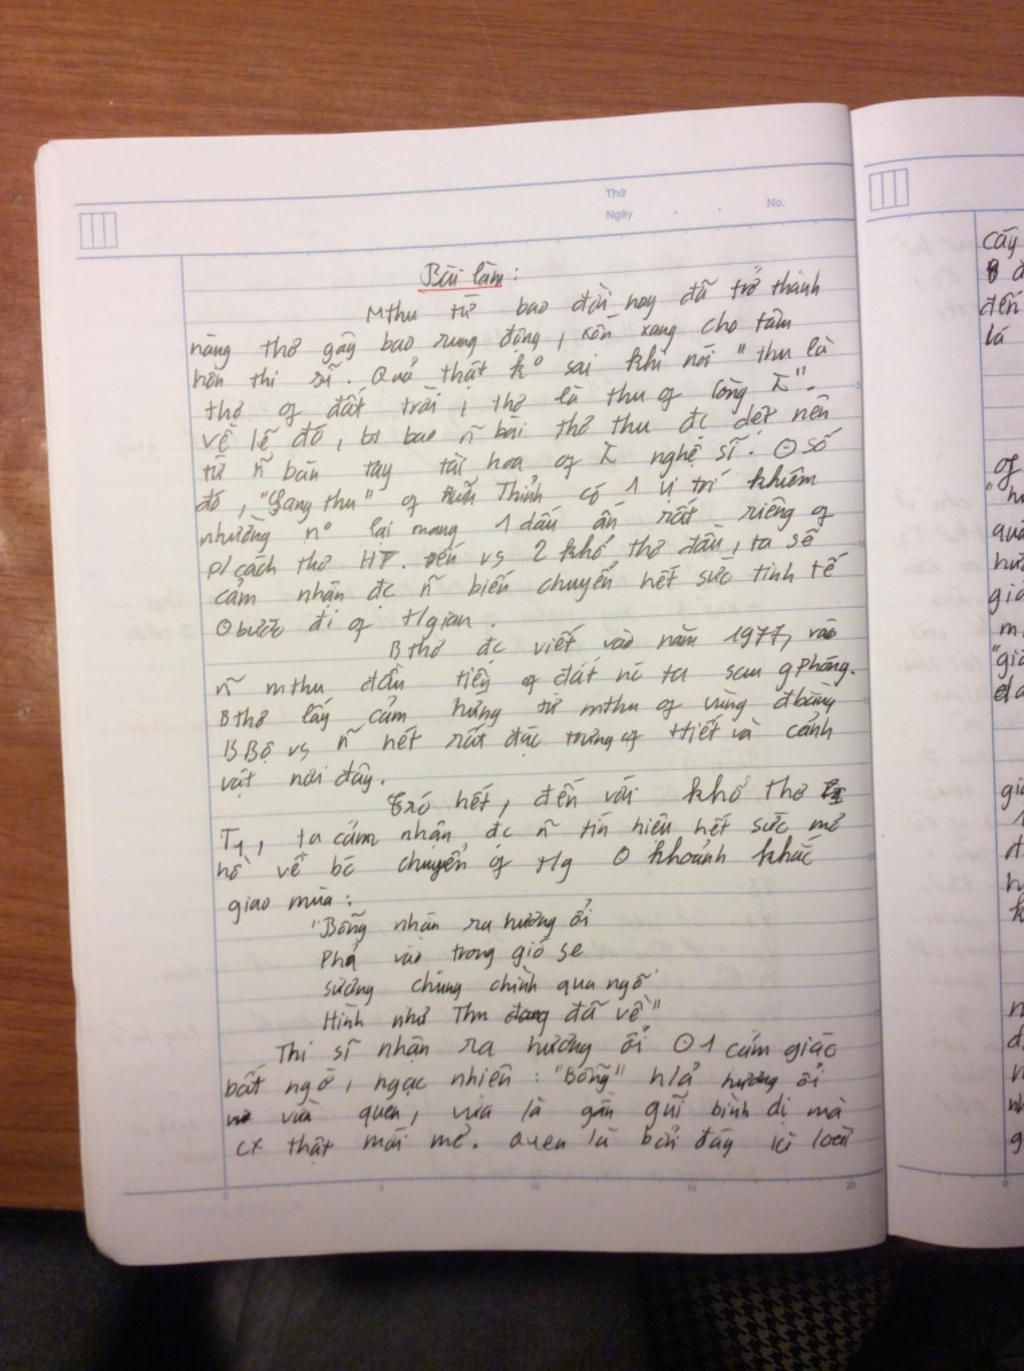 Thứ
Ngày
No.
Bài làm:
Mthu từ bao đời nay đã trở thành
nàng thơ gây bao rung động, xốn xang cho tâm
hồn thi sĩ. Quả thật ko sai khi nói "thu là
thơ of đất trời, thơ là thu of lòng
Về lẽ đó, bao ñ bài thơ thu đc dệt nên
từ ñ bàn tay tài hoa of nghệ sĩ. Θ số
đó, "Sang thu" of Hữu Thỉnh có 1 vị trí khiêm
nhường no lại mang 1 dấu ấn rất riêng of
p/cách thơ HT. Đến vs 2 khổ thơ đầu, ta sẽ
cảm nhận đc ñ biến chuyển hết sức tinh tế
Θ bước đi of t/gian.
B thơ đc viết vào năm 1977, vào
ñ mthu đầu tiên of đất nc ta sau gphóng.
Bthơ lấy cảm hứng từ mthu of vùng đbằng
BBộ vs ñ nét rất đặc trưng of ttiết và cảnh
vật nơi đây.
Trc hết, đến với khổ thơ
T1, ta cảm nhận đc ñ tín hiệu hết sức mơ
hồ về bc chuyển of tg Θ khoảnh khắc
giao mùa:
"Bỗng nhận ra hương ổi
Phả vào trong gió se
Sương chùng chình qua ngõ
Hình như Thu đã về"
Thi sĩ nhận ra hương ổi Θ 1 cảm giác
bất ngờ, ngạc nhiên: "Bỗng" hương ổi
vừa quen, vừa lạ gần gũi bình dị mà
cx thật mới mẻ. Quen là bởi đây là loài
cây
đến
lá
of